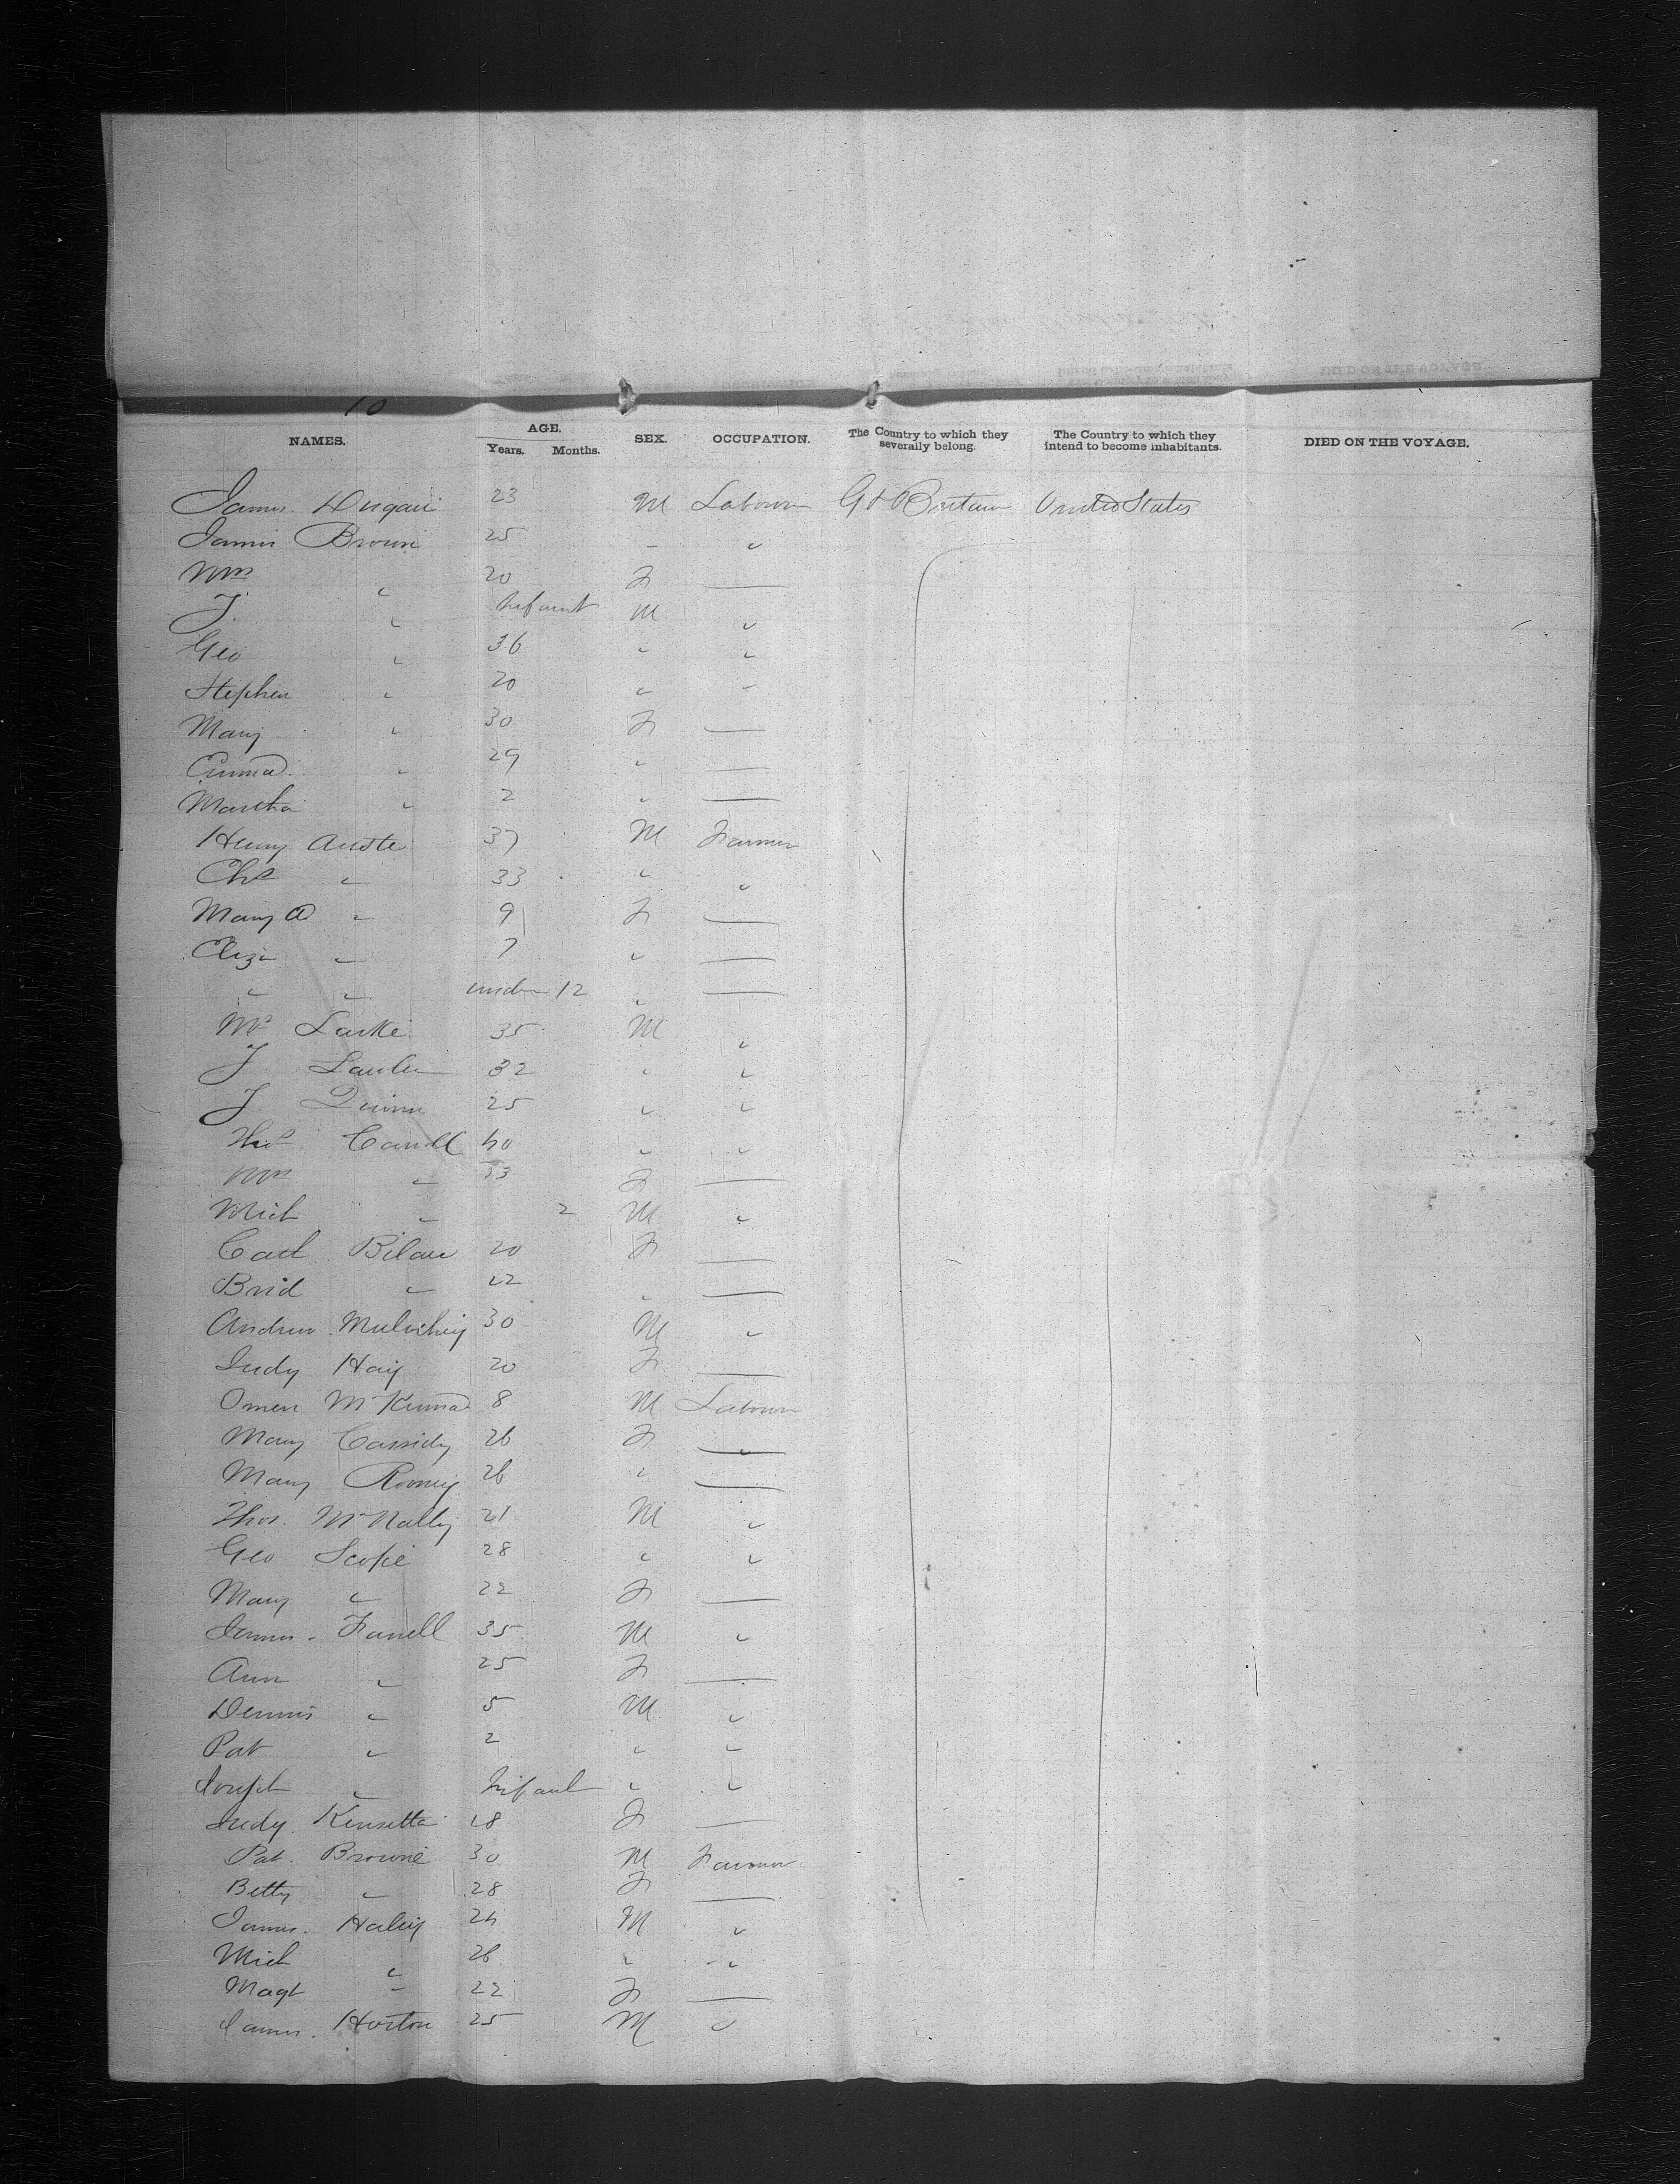 10
NAMES. AGE. Years. Months. SEX. OCCUPATION. The Country to which they severally belong. The Country to which they intend to become inhabitants. DIED ON THE VOYAGE.
James Dugan 23 M Labourer Gt Britain United States
James Brown 25 - "
Mrs " 20 F —
J. " Infant M "
Geo " 36 " "
Stephen " 20 " "
Mary " 30 F —
Emma " 29 " —
Martha " 2 " —
Henry 37 M Farmer
Chs " 33 " "
Mary A " 9 F —
Eliza " 7 " —
" " under 12 " —
35 M "
J 32 " "
J Quinn 25 " "
Thos Carroll 40 " "
Mrs " 33 F —
Mich " 2 M "
20 F —
Brid " 22 " —
Andrew 30 M "
Judy Hay 20 F —
8 M Labourer
Mary Cassidy 26 F —
Mary Rooney 26 " —
Thos. McNally 21 M "
Geo Scope 28 " "
Mary " 22 F —
James Farrell 35 M "
Ann " 25 F —
Dennis " 5 M "
Pat " 2 " "
Joseph " Infant " "
Judy Kinsetta 18 F —
Pat. Browne 30 M Farmer
Betty " 28 F —
James. Haley 24 M "
Mich " 26 " "
Magt " 22 F —
James. Horton 25 M "